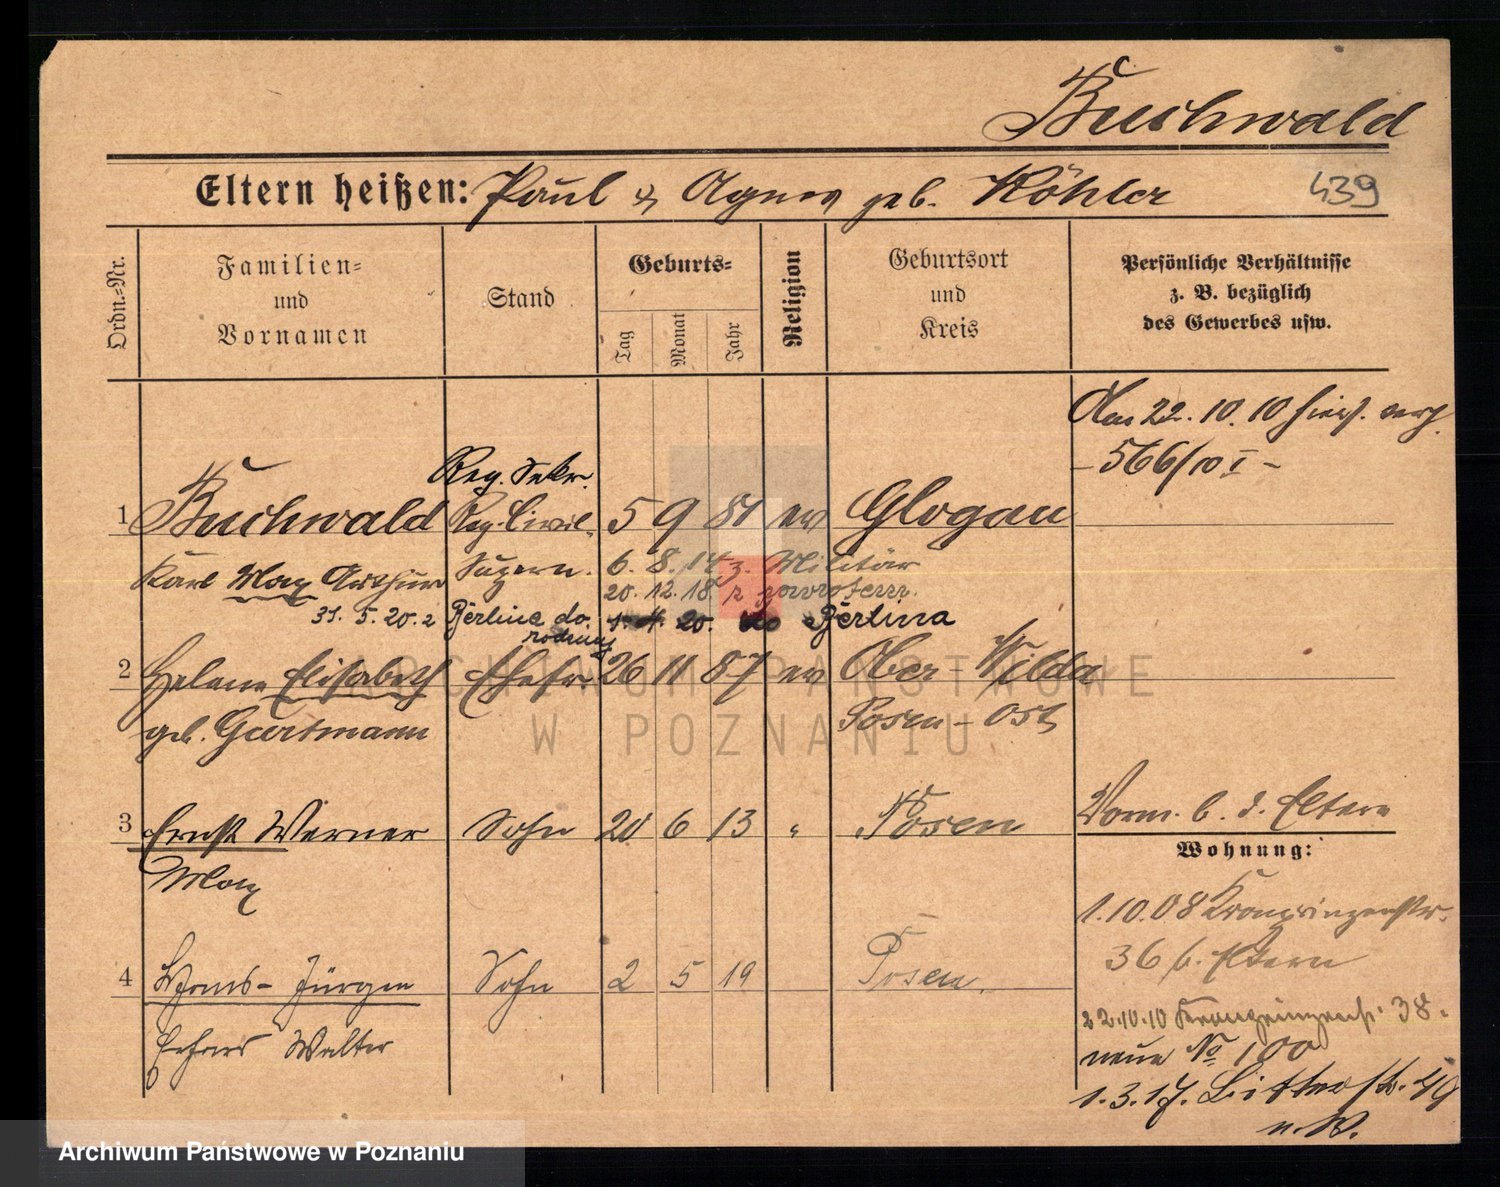 Buchwald
Eltern heißen: Paul & Agnes geb. Köhler 439
Ordn.=Nr.
Familien=
und
Vornamen
Stand
Geburts=
Tag
Monat
Jahr
Religion
Geburtsort
und
Kreis
Persönliche Verhältnisse
z. B. bezüglich
des Gewerbes usw.
Am 22.10.10 hier verh.
- 566/10 I -
Reg. Sekr.
1 Buchwald Reg. Civil- 5 9 81 ev Glogau
Karl Max Arthur Supern. 6. 8. 14 z. Militär
20. 12. 18. z powrotem.
31. 5. 20. z Berlina do 1. 4. 20. do Berlina
rodziny
2 Helene Elisabeth Ehefr. 26 11 87 ev Ober-Wilda
geb. Gartmann Posen-Ost
3 Ernst Werner Sohn 20 6 13 " Posen
Max
Vorm. b. d. Eltern
Wohnung:
1.10.08 Kronprinzenstr.
36 b. Eltern
4 Hans-Jürgen Sohn 2 5 19 Posen.
Walter
22.10.10 Kronprinzenstr. 38.
neue No 100
1.3.17. 49
n. W.
ARCHIWUM PAŃSTWOWE
W POZNANIU
Archiwum Państwowe w Poznaniu